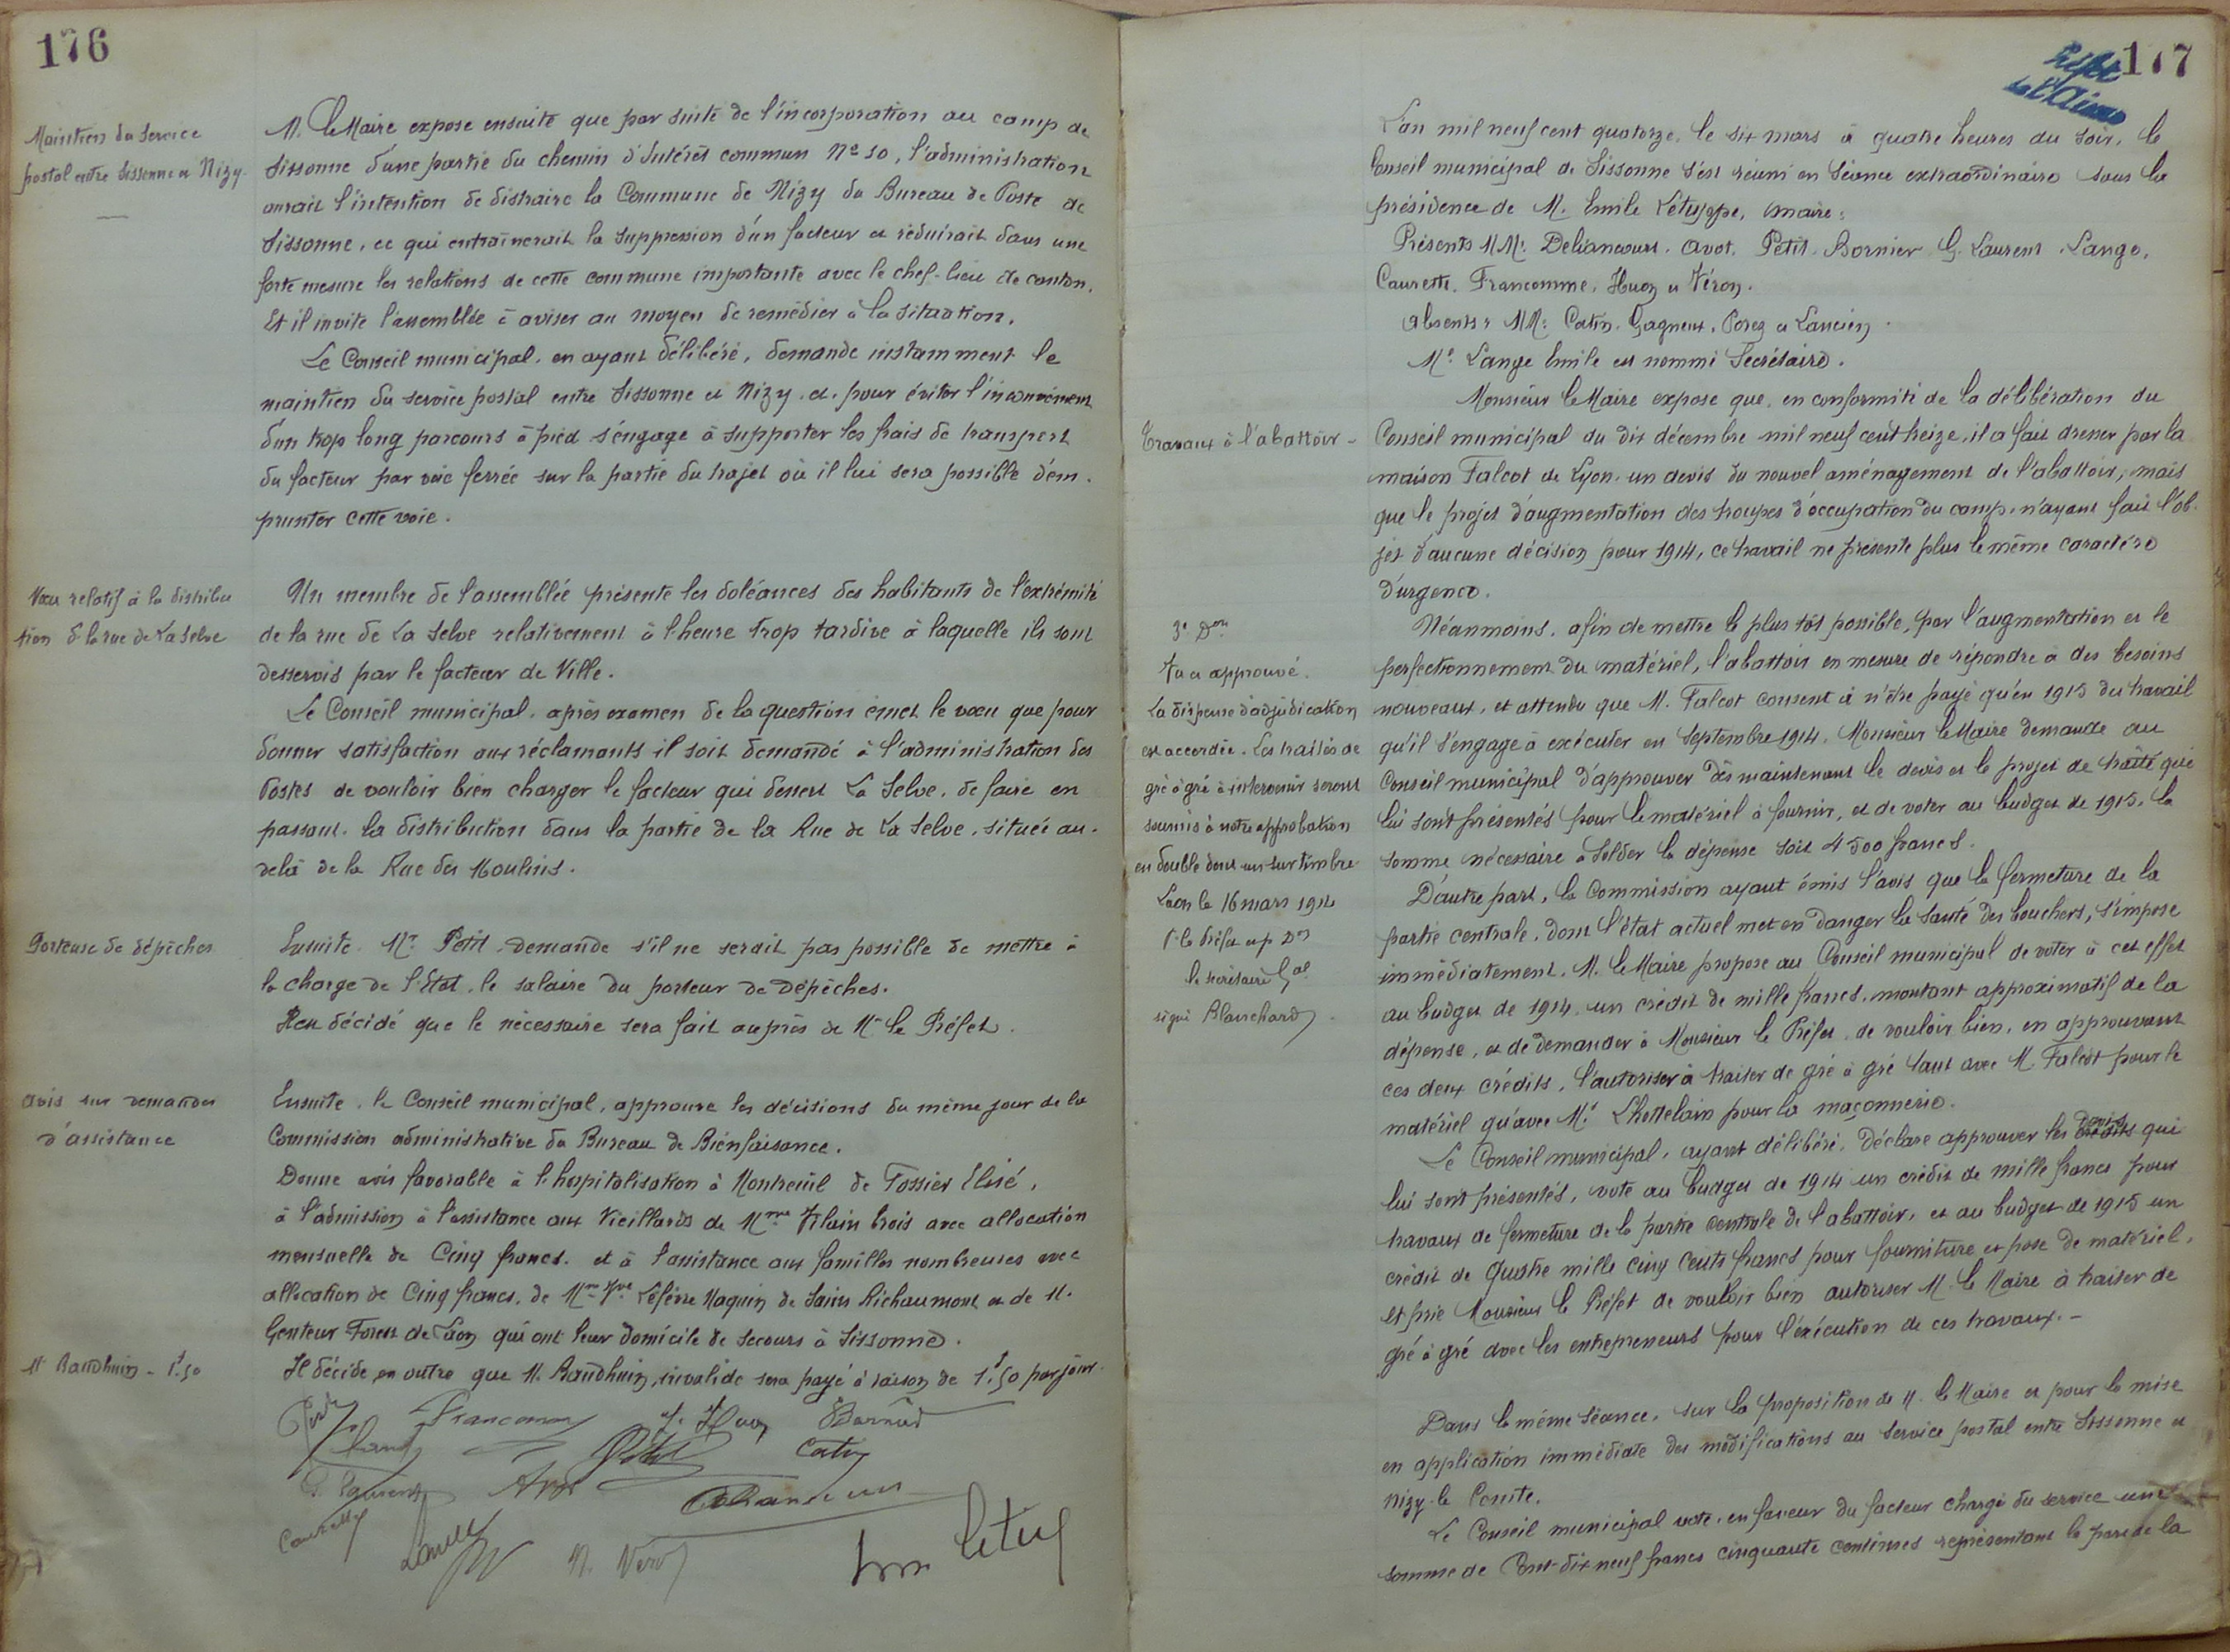 176
Maintien du service
postal entre Sissonne et Nizy.
M. le Maire expose ensuite que par suite de l'incorporation au camp de
Sissonne d'une partie du chemin d'Intérêt commun No 10, l'administration
aurait l'intention de distraire la Commune de Nizy du Bureau de Poste de
Sissonne, ce qui entraînerait la suppression d'un facteur et réduirait dans une
forte mesure les relations de cette commune importante avec le chef-lieu de canton.
Et il invite l'assemblée à aviser au moyen de remédier à la situation.
Le Conseil municipal, en ayant délibéré, demande instamment le
maintien du service postal entre Sissonne et Nizy, et, pour éviter l'inconvénient
d'un trop long parcours à pied s'engage à supporter les frais de transport
du facteur par voie ferrée sur la partie du trajet où il lui sera possible d'em-
prunter cette voie.
Vœu relatif à la distribu
tion d. la rue de La Selve
Un membre de l'assemblée présente les doléances des habitants de l'extrémité
de la rue de La Selve relativement à l'heure trop tardive à laquelle ils sont
desservis par le facteur de Ville.
Le Conseil municipal, après examen de la question émet le vœu que pour
donner satisfaction aux réclamants il soit demandé à l'administration des
Postes de vouloir bien charger le facteur qui dessert La Selve, de faire en
passant, la distribution dans la partie de la Rue de La Selve, située au-
delà de la Rue des Moulins.
Porteuse de dépêches
Ensuite Mr Petit demande s'il ne serait pas possible de mettre à
la charge de l'Etat, le salaire du porteur de dépêches.
Il est décidé que le nécessaire sera fait auprès de Mr le Préfet.
Avis sur demandes
d'assistance
Ensuite, le Conseil municipal, approuve les décisions du même jour de la
Commission administrative du Bureau de Bienfaisance.
Donne avis favorable à l'hospitalisation à Montreuil de Tossier Elisé,
à l'admission à l'assistance aux Vieillards de Mme Vilain Trois avec allocation
mensuelle de Cinq francs, et à l'assistance aux familles nombreuses avec
allocation de Cinq francs, de Mme Vve Lefèvre Naquin de Sains Richaumont et de M.
Genteur Forest de Laon qui ont leur domicile de secours à Sissonne.
M. Baudhuin - 1f.50
Il décide en outre que M. Baudhuin, invalide sera payé à raison de 1f.50 par jour.
Francomme J. Huon
Petit Catin
G. Laurent Avot
Caurette N. Véron
177
Préfre
de l'Aisne
L'an mil neuf cent quatorze, le six mars à quatre heures du soir, le
Conseil municipal de Sissonne s'est réuni en Séance extraordinaire sous la
présidence de M. Emile Létuppe, maire:
Présents MM. Deliancourt. Avot. Petit. Bornier. G. Laurent. Lange.
Caurette. Francomme. Huon et Véron.
Absents: MM. Catin. Gagneux. Porez et Lancien.
Mr. Lange Emile est nommé Secrétaire.
Travaux à l'abattoir -
Monsieur le Maire expose que, en conformité de la délibération du
Conseil municipal du dix décembre mil neuf cent treize, il a fait dresser par la
maison Falcot de Lyon, un devis du nouvel aménagement de l'abattoir, mais
que le projet d'augmentation des troupes d'occupation du camp, n'ayant fait l'ob-
jet d'aucune décision pour 1914, ce travail ne présente plus le même caractère
d'urgence.
3e Don
Vu et approuvé.
La dispense d'adjudication
est accordée. Les traités de
gré à gré à intervenir seront
soumis à notre approbation
en double dont un sur timbre
Laon le 16 mars 1914
Pr le Préfet
le secrétaire Gal
signé Blanchard.
Néanmoins, afin de mettre le plus tôt possible, par l'augmentation et le
perfectionnement du matériel, l'abattoir en mesure de répondre à des besoins
nouveaux, et attendu que M. Falcot consent à n'être payé qu'en 1915 du travail
qu'il s'engage à exécuter en Septembre 1914. Monsieur le Maire demande au
Conseil municipal d'approuver dès maintenant le devis et le projet de traité qui
lui sont présentés pour le matériel à fournir, et de voter au budget de 1915, la
somme nécessaire à solder la dépense soit 4500 francs.
D'autre part, la Commission ayant émis l'avis que la fermeture de la
partie centrale, dont l'état actuel met en danger la santé des bouchers, s'impose
immédiatement. M. le Maire propose au Conseil municipal de voter à cet effet
au budget de 1914, un crédit de mille francs, montant approximatif de la
dépense, et de demander à Monsieur le Préfet de vouloir bien, en approuvant
ces deux crédits, l'autoriser à traiter de gré à gré tant avec M Falcot pour le
matériel qu'avec Mr. Lhottelain pour la maçonnerie.
Le Conseil municipal, ayant délibéré, déclare approuver les crédits devis qui
lui sont présentés, vote au budget de 1914 un crédit de mille francs pour
travaux de fermeture de la partie centrale de l'abattoir, et au budget de 1915 un
crédit de quatre mille cinq cents francs pour fourniture et pose de matériel,
et prie Monsieur le Préfet de vouloir bien autoriser M. le Maire à traiter de
gré à gré avec les entrepreneurs pour l'exécution de ces travaux. -
Dans la même séance, sur la proposition de M. le Maire et pour la mise
en application immédiate des modifications au service postal entre Sissonne et
Nizy-le Comte,
Le Conseil municipal vote, en faveur du facteur chargé du service une
somme de Cent-dix neuf francs cinquante centimes représentant le prix de la